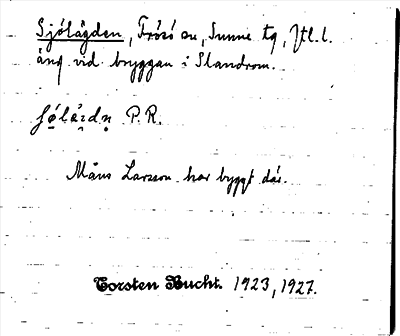 Sjölägden, Frösö sn, Sunne tg, Jtl. l.
äng vid bryggan i Slandrom.
P. R.
Måns Larsson har byggt där.
Torsten Bucht. 1923, 1927.